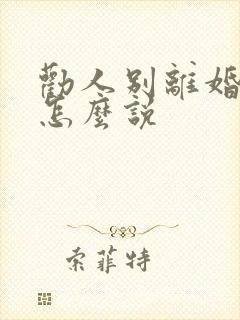 勸人別離婚
怎麼説
索菲特